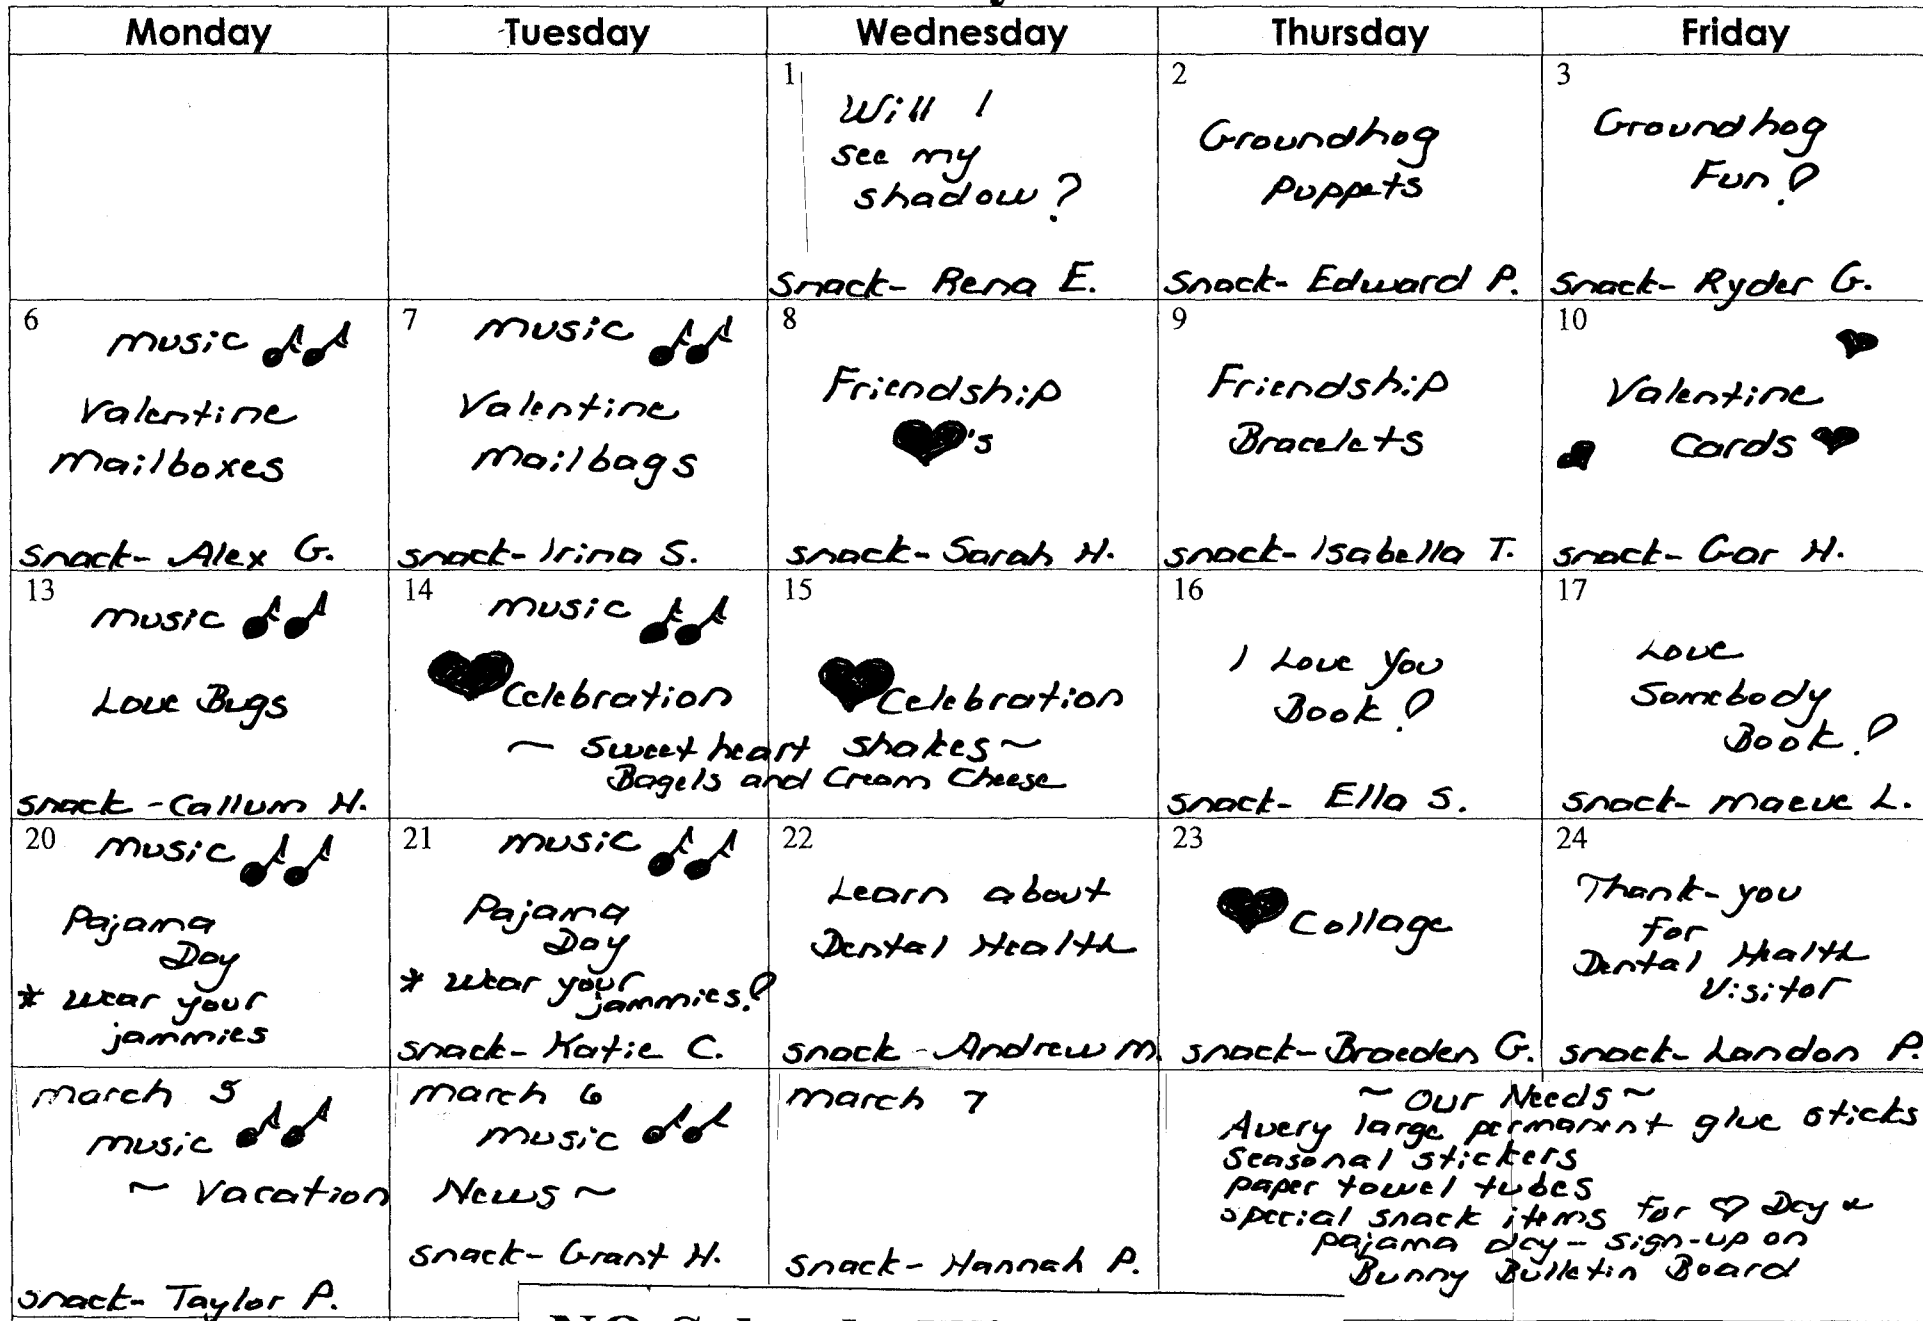 Monday Tuesday Wednesday Thursday Friday
1
Will I
see my
shadow?
Snack- Rena E.
2
Groundhog
Puppets
Snack- Edward P.
3
Groundhog
Fun!
Snack- Ryder G.
6
Music
Valentine
Mailboxes
Snack- Alex G.
7
Music
Valentine
Mailbags
snack- Irina S.
8
Friendship
♥'s
snack- Sarah H.
9
Friendship
Bracelets
snack- Isabella T.
10
Valentine
Cards
snack- Gar H.
13
Music
Love Bugs
snack - Callum H.
14
Music
♥ Celebration
15
♥ Celebration
~ Sweetheart Shakes ~
Bagels and Cream Cheese
16
I Love You
Book!
snack- Ella S.
17
Love
Somebody
Book!
snack- Maeve L.
20
Music
Pajama
Day
* Wear your
jammies
21
Music
Pajama
Day
* Wear your
jammies!
snack- Katie C.
22
Learn about
Dental Health
snack - Andrew M.
23
♥ Collage
snack- Braeden G.
24
Thank-you
For
Dental Health
Visitor
snack- Landon P.
March 5
Music
March 6
Music
~ Vacation News ~
snack- Taylor P.
snack- Grant H.
March 7
snack- Hannah P.
~ Our Needs ~
Avery large permanent glue sticks
Seasonal stickers
paper towel tubes
special snack items for ♡ Day &
pajama day - sign-up on
Bunny Bulletin Board